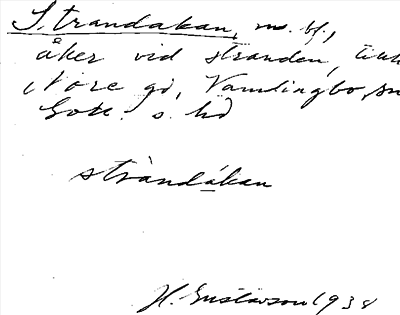 Strandåkan, m. bf.,
åker vid stranden,
Nore gd, Vamlingbo sn
Gotl. s. hd
stràndákan
H. Gustavson 1938